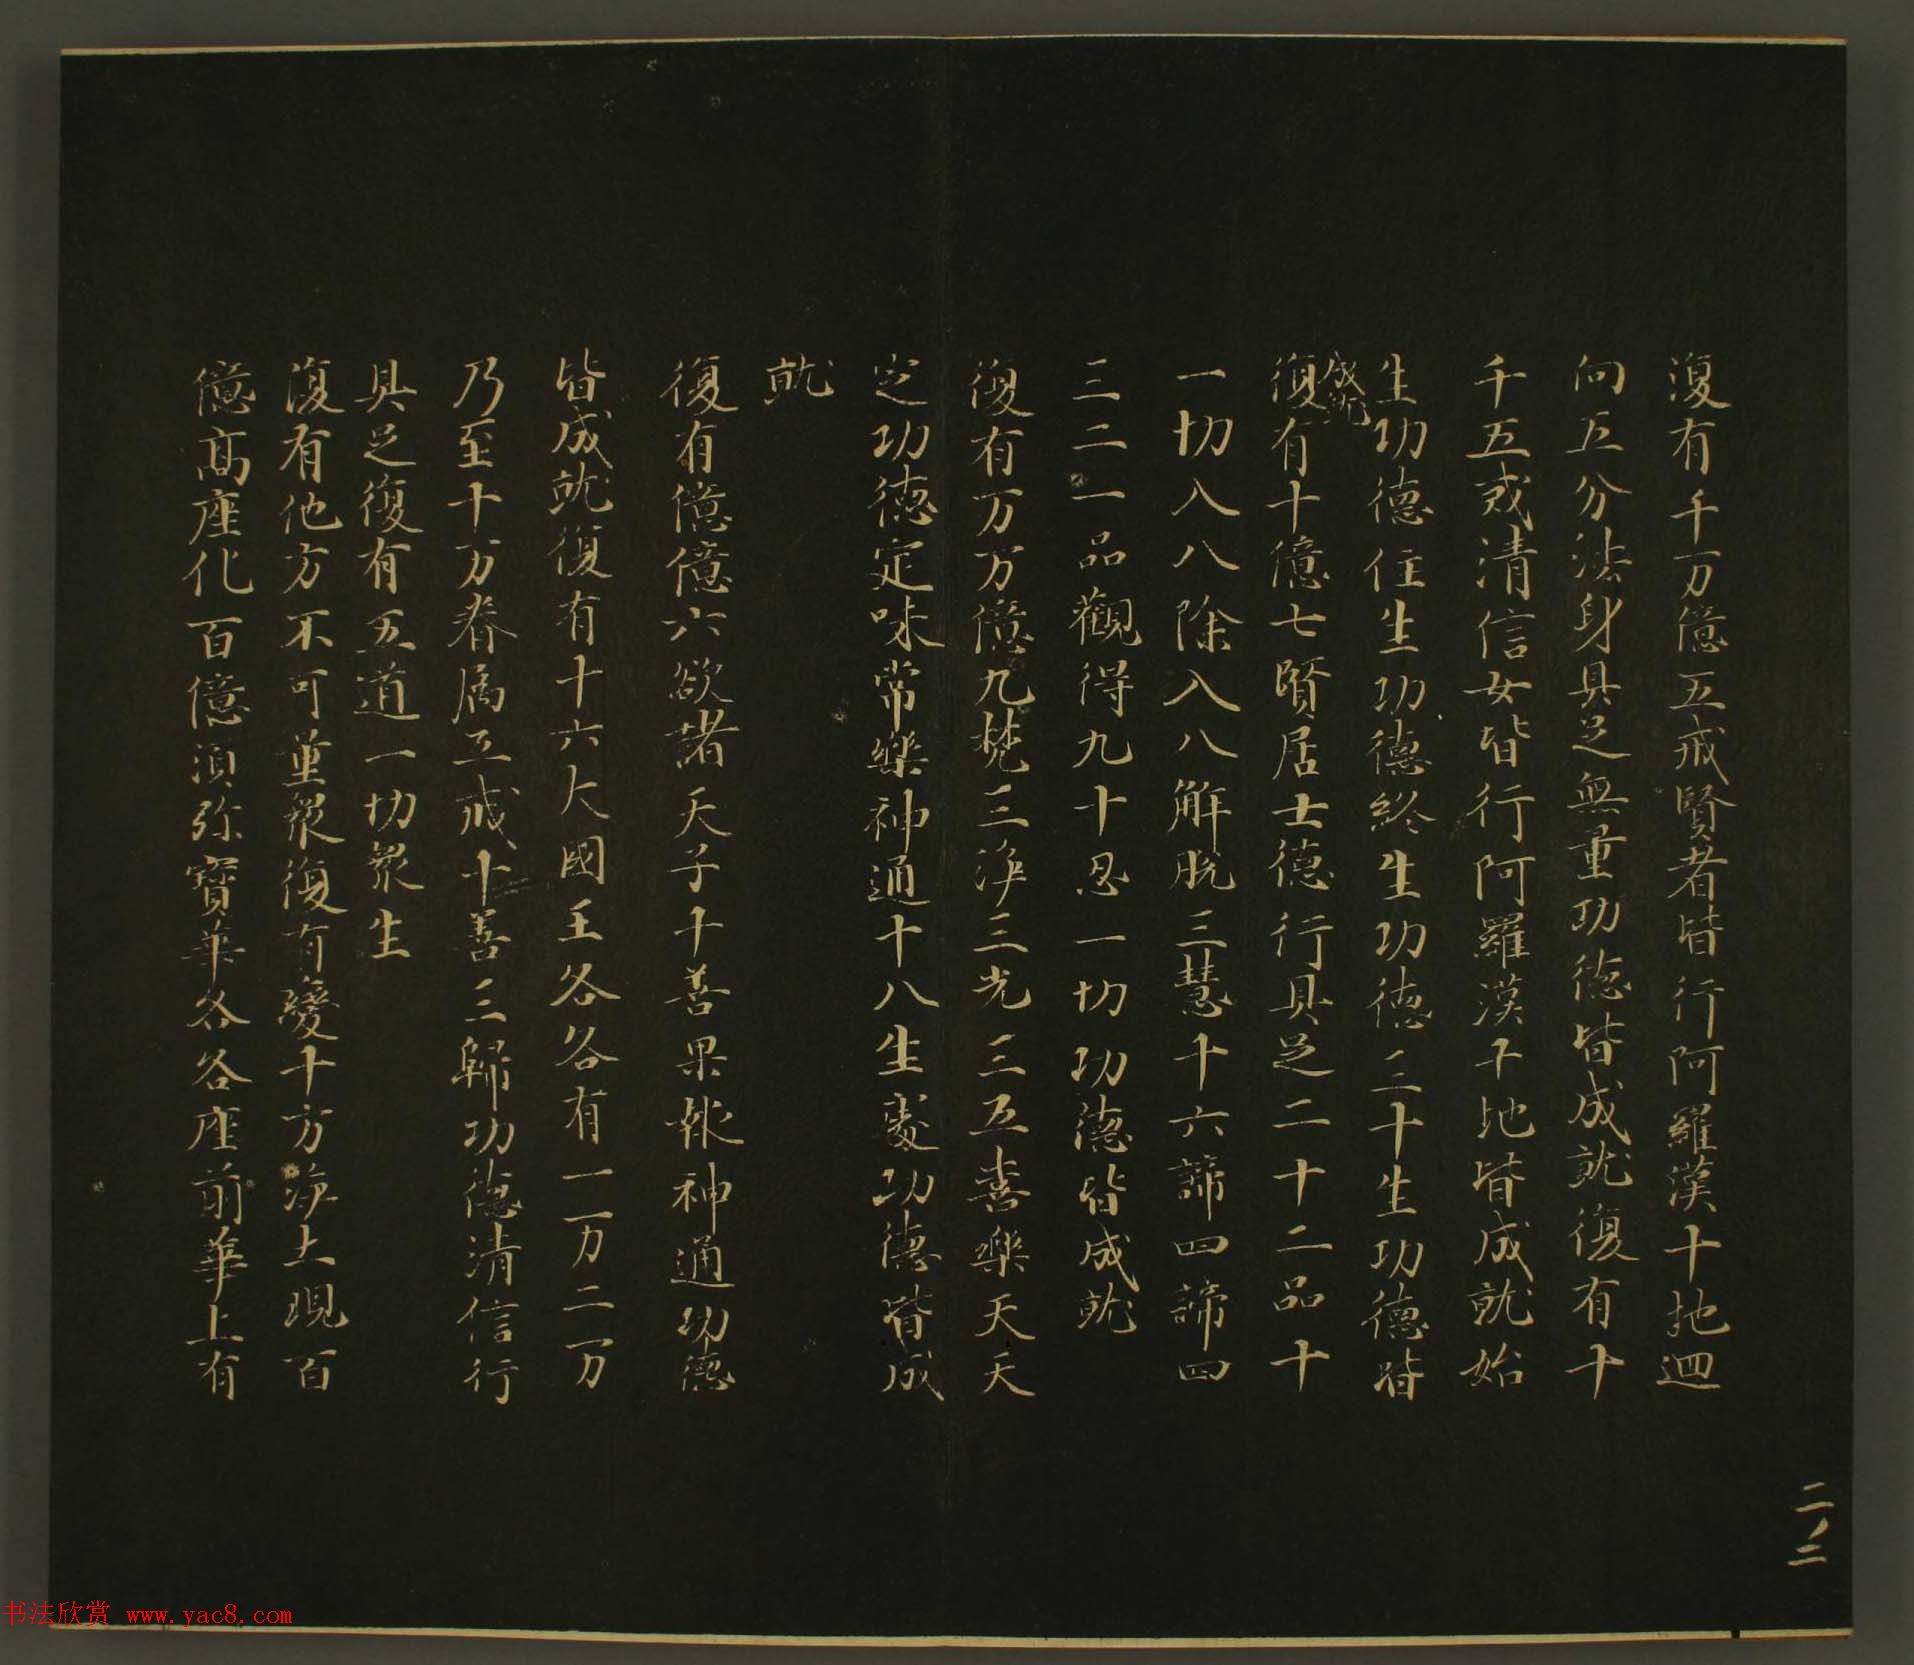 復有千万億五戒賢者皆行阿羅漢十地迴
向五分法身具足無量功德皆成就復有十
千五戒清信女皆行阿羅漢十地皆成就始
生功德住生功德終生功德三十生功德皆
成就
復有十億七賢居士德行具足二十二品十
一切入八除入八解脫三慧十六諦四諦四
三二一品觀得九十忍一切功德皆成就
復有万万億九梵三淨三光三五喜樂天天
定功德定味常樂神通十八生處功德皆成
就
復有億億六欲諸天子十善果報神通功德
皆成就復有十六大國王各各有一万二万
乃至十万眷属五戒十善三歸功德清信行
具足復有五道一切眾生
復有他方不可量眾復有變十方淨土現百
億高座化百億湏弥寶華各各座前華上有
二ノ二
书法欣赏 www.yac8.com